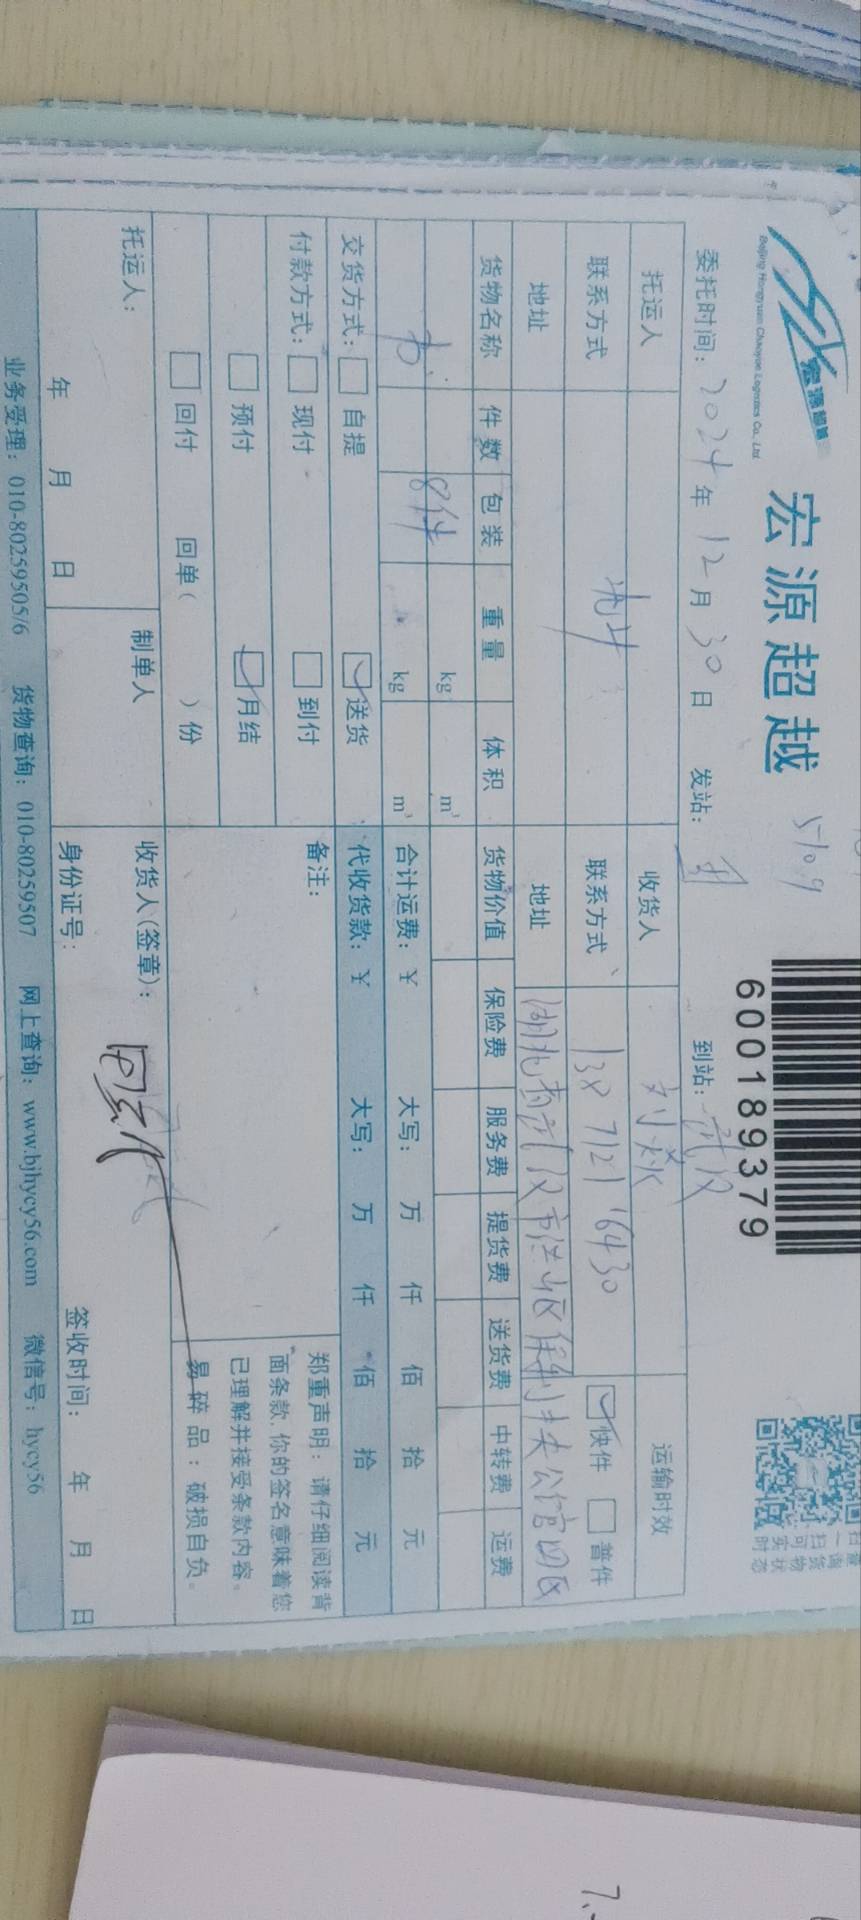 宏源超越
Beijing Hongyuan Chaoyue Logistics Co., Ltd.
宏源超越
5109
600189379
委托时间：2024年12月30日 发站： 到站：武汉
托运人 收货人 运输时效
联系方式 联系方式 138 7121 6430 快件 普件
地址 地址 湖北省武汉市洪山区保利中央公馆四区
货物名称 件数 包装 重量 体积 货物价值 保险费 服务费 提货费 送货费 中转费 运费
8件 kg m³
书 kg m³ 合计运费：¥ 大写： 万 仟 佰 拾 元
交货方式： 自提 送货 代收货款：¥ 大写： 万 仟 佰 拾 元
付款方式： 现付 到付 备注：
预付 月结
回付 回单( )份
郑重声明：请仔细阅读背
面条款,你的签名意味着您
已理解并接受条款内容。
易碎品：破损自负。
托运人： 制单人 收货人(签章)：
年 月 日 身份证号： 签收时间： 年 月 日
业务受理：010-80259505/6 货物查询：010-80259507 网上查询：www.bjhycy56.com 微信号：hycy56